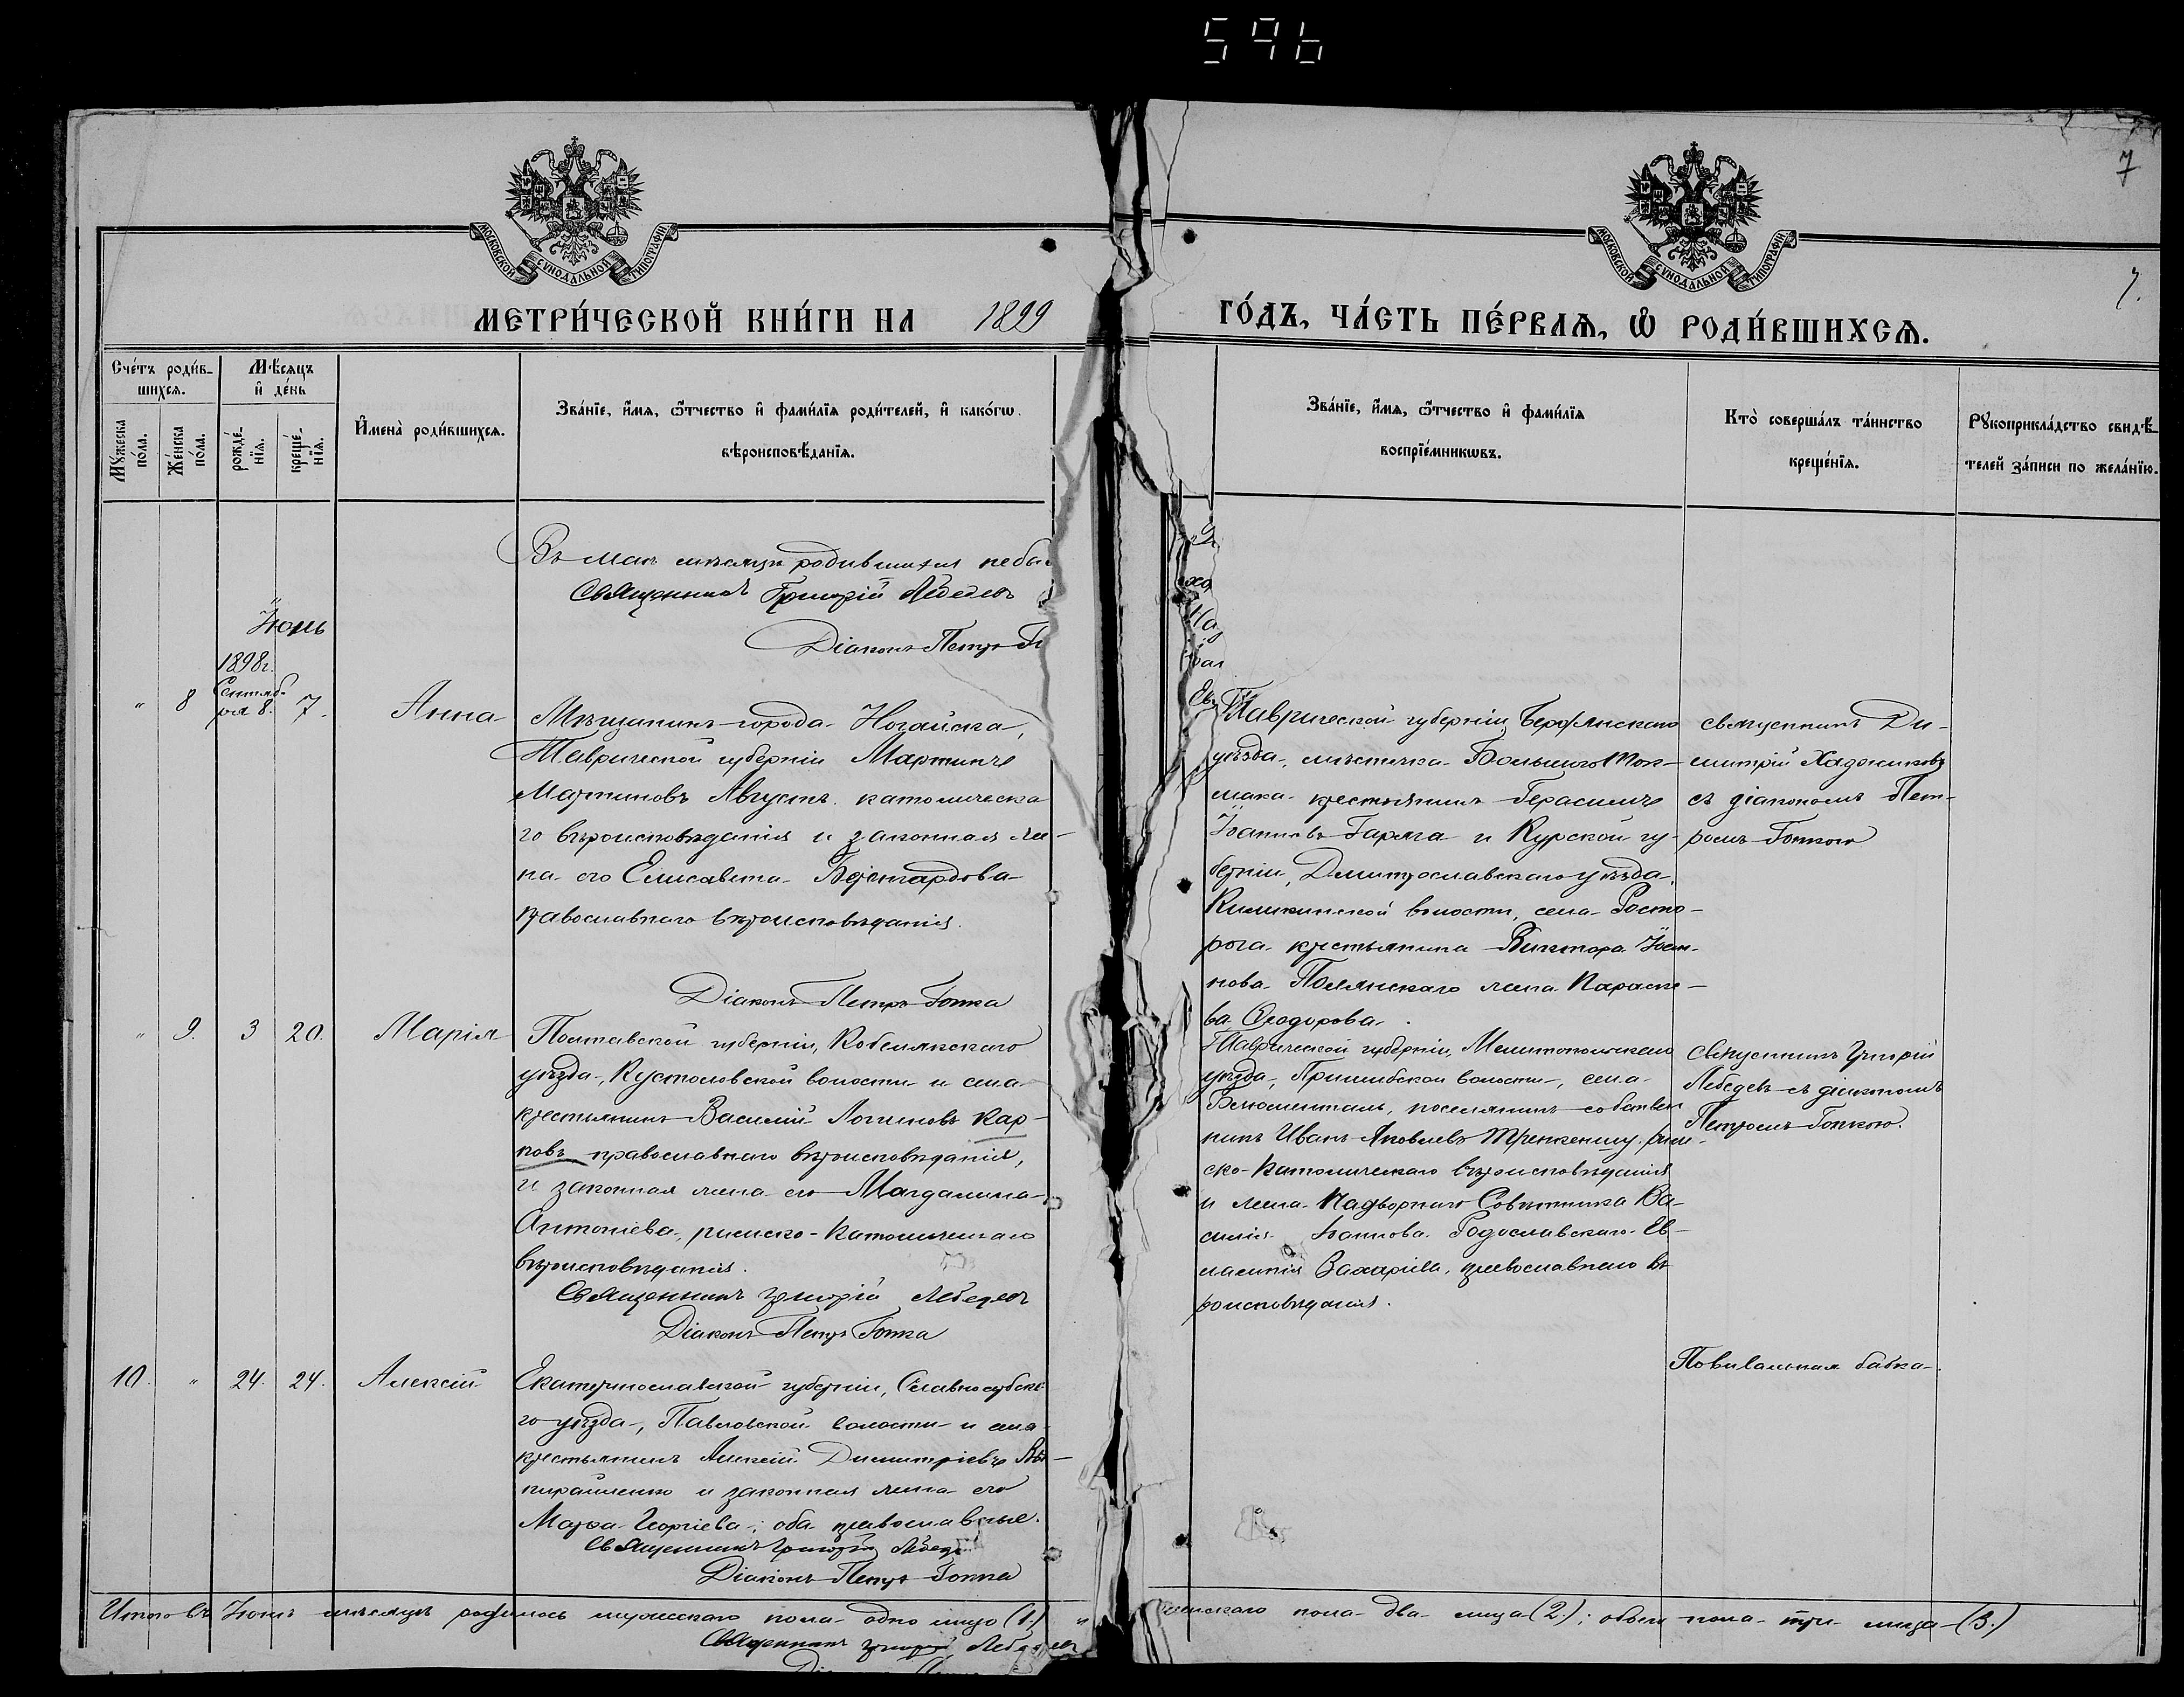 596
7
МОСКОВСКОЙ СУНОДАЛЬНОЙ ТИПОГРАФІИ
МОСКОВСКОЙ СУНОДАЛЬНОЙ ТИПОГРАФІИ
7.
МЕТРИ́ЧЕСКОЙ КНИ́ГИ НА 1899
ГО́ДЪ, ЧА́СТЬ ПЕ́РВАѦ, Ѽ РОДИ́ВШИХСѦ.
Сче́тъ роди́в-
шихсѧ.
Мꙋ́жеска по́ла.
Же́нска по́ла.
Мѣ́сѧцъ
и҆ де́нь
рожде́-нїѧ.
креще́-нїѧ.
И҆мена̀ роди́вшихсѧ.
Зва́нїе, и҆́мѧ, ѻ҆́тчество и҆ фами́лїѧ роди́телей, и҆ како́гѡ
вѣроисповѣ́данїѧ.
Зва́нїе, и҆́мѧ, ѻ҆́тчество и҆ фами́лїѧ
воспрїе́мникѡвъ.
Кто̀ соверша́лъ та́инство
креще́нїѧ.
Рꙋкоприкла́дство свидѣ́-
телей за́писи по жела́нїю.
Въ маѣ мѣсяцѣ родившихся не бы
Священникъ Григорій Лебедевъ
Діаконъ Петръ
Іюнь
1898г.
Сентяб-
ря 8.
" 8 7.
Анна
Мѣщанинъ города Ногайска,
Таврической губерніи Мартинъ
Мартиновъ Августъ католическа
го вѣроисповѣданія и законная же-
на его Елисавета
православнаго вѣроисповѣданія.
Діаконъ Петръ Гопка
Таврической губерніи Бердянскаго
уѣзда, мѣстечка Большого Ток-
мака крестьянинъ Герасимъ
Іоанновъ Гаряга и Курской гу-
берніи, Дмитрославскаго уѣзда,
волости, села Росто-
рога крестьянина Виктора Іоан-
нова Полянскаго жена Параске-
ва Ѳеодорова.
священникъ Ди-
митрій Хаджиновъ
съ діакономъ Пет-
ромъ Гопкою
" 9. 3 20. Марія
Полтавской губерніи, Кобелякскаго
уѣзда, Кустоловской волости и села
крестьянинъ Василій Логиновъ Кар-
повъ православнаго вѣроисповѣданія,
и законная жена его Магдалина
Антоніева, римско-католическаго
вѣроисповѣданія.
Священникъ Григорій Лебедевъ
Діаконъ Петръ Гопка
Таврической губерніи, Мелитопольскаго
уѣзда, Пришибской волости, села
Блюменталь, поселянинъ собствен
никъ Иванъ Яковлевъ рим-
ско-католическаго вѣроисповѣданія
и жена Надворнаго Совѣтника Ва-
силія Іоаннова Годославскаго Ев-
лампія Захаріева, православнаго вѣ
роисповѣданія.
священникъ Григорій
Лебедевъ съ діакономъ
Петромъ Гопкою.
10. " 24. 24. Алексій
Екатеринославской губерніи, Славяносербска
го уѣзда, Павловской волости и села
крестьянинъ Алексій Димитріевъ
и законная жена его
Марѳа Георгіева; оба православные.
Священникъ Григорій Лебед
Діаконъ Петръ Гопка
Повивальная бабка.
Итого въ Іюнѣ мѣсяцѣ родилось мужескаго пола одно лицо (1.) и
женскаго пола два лица (2.); обоего пола три лица (3.)
Священникъ Григорій Лебедевъ